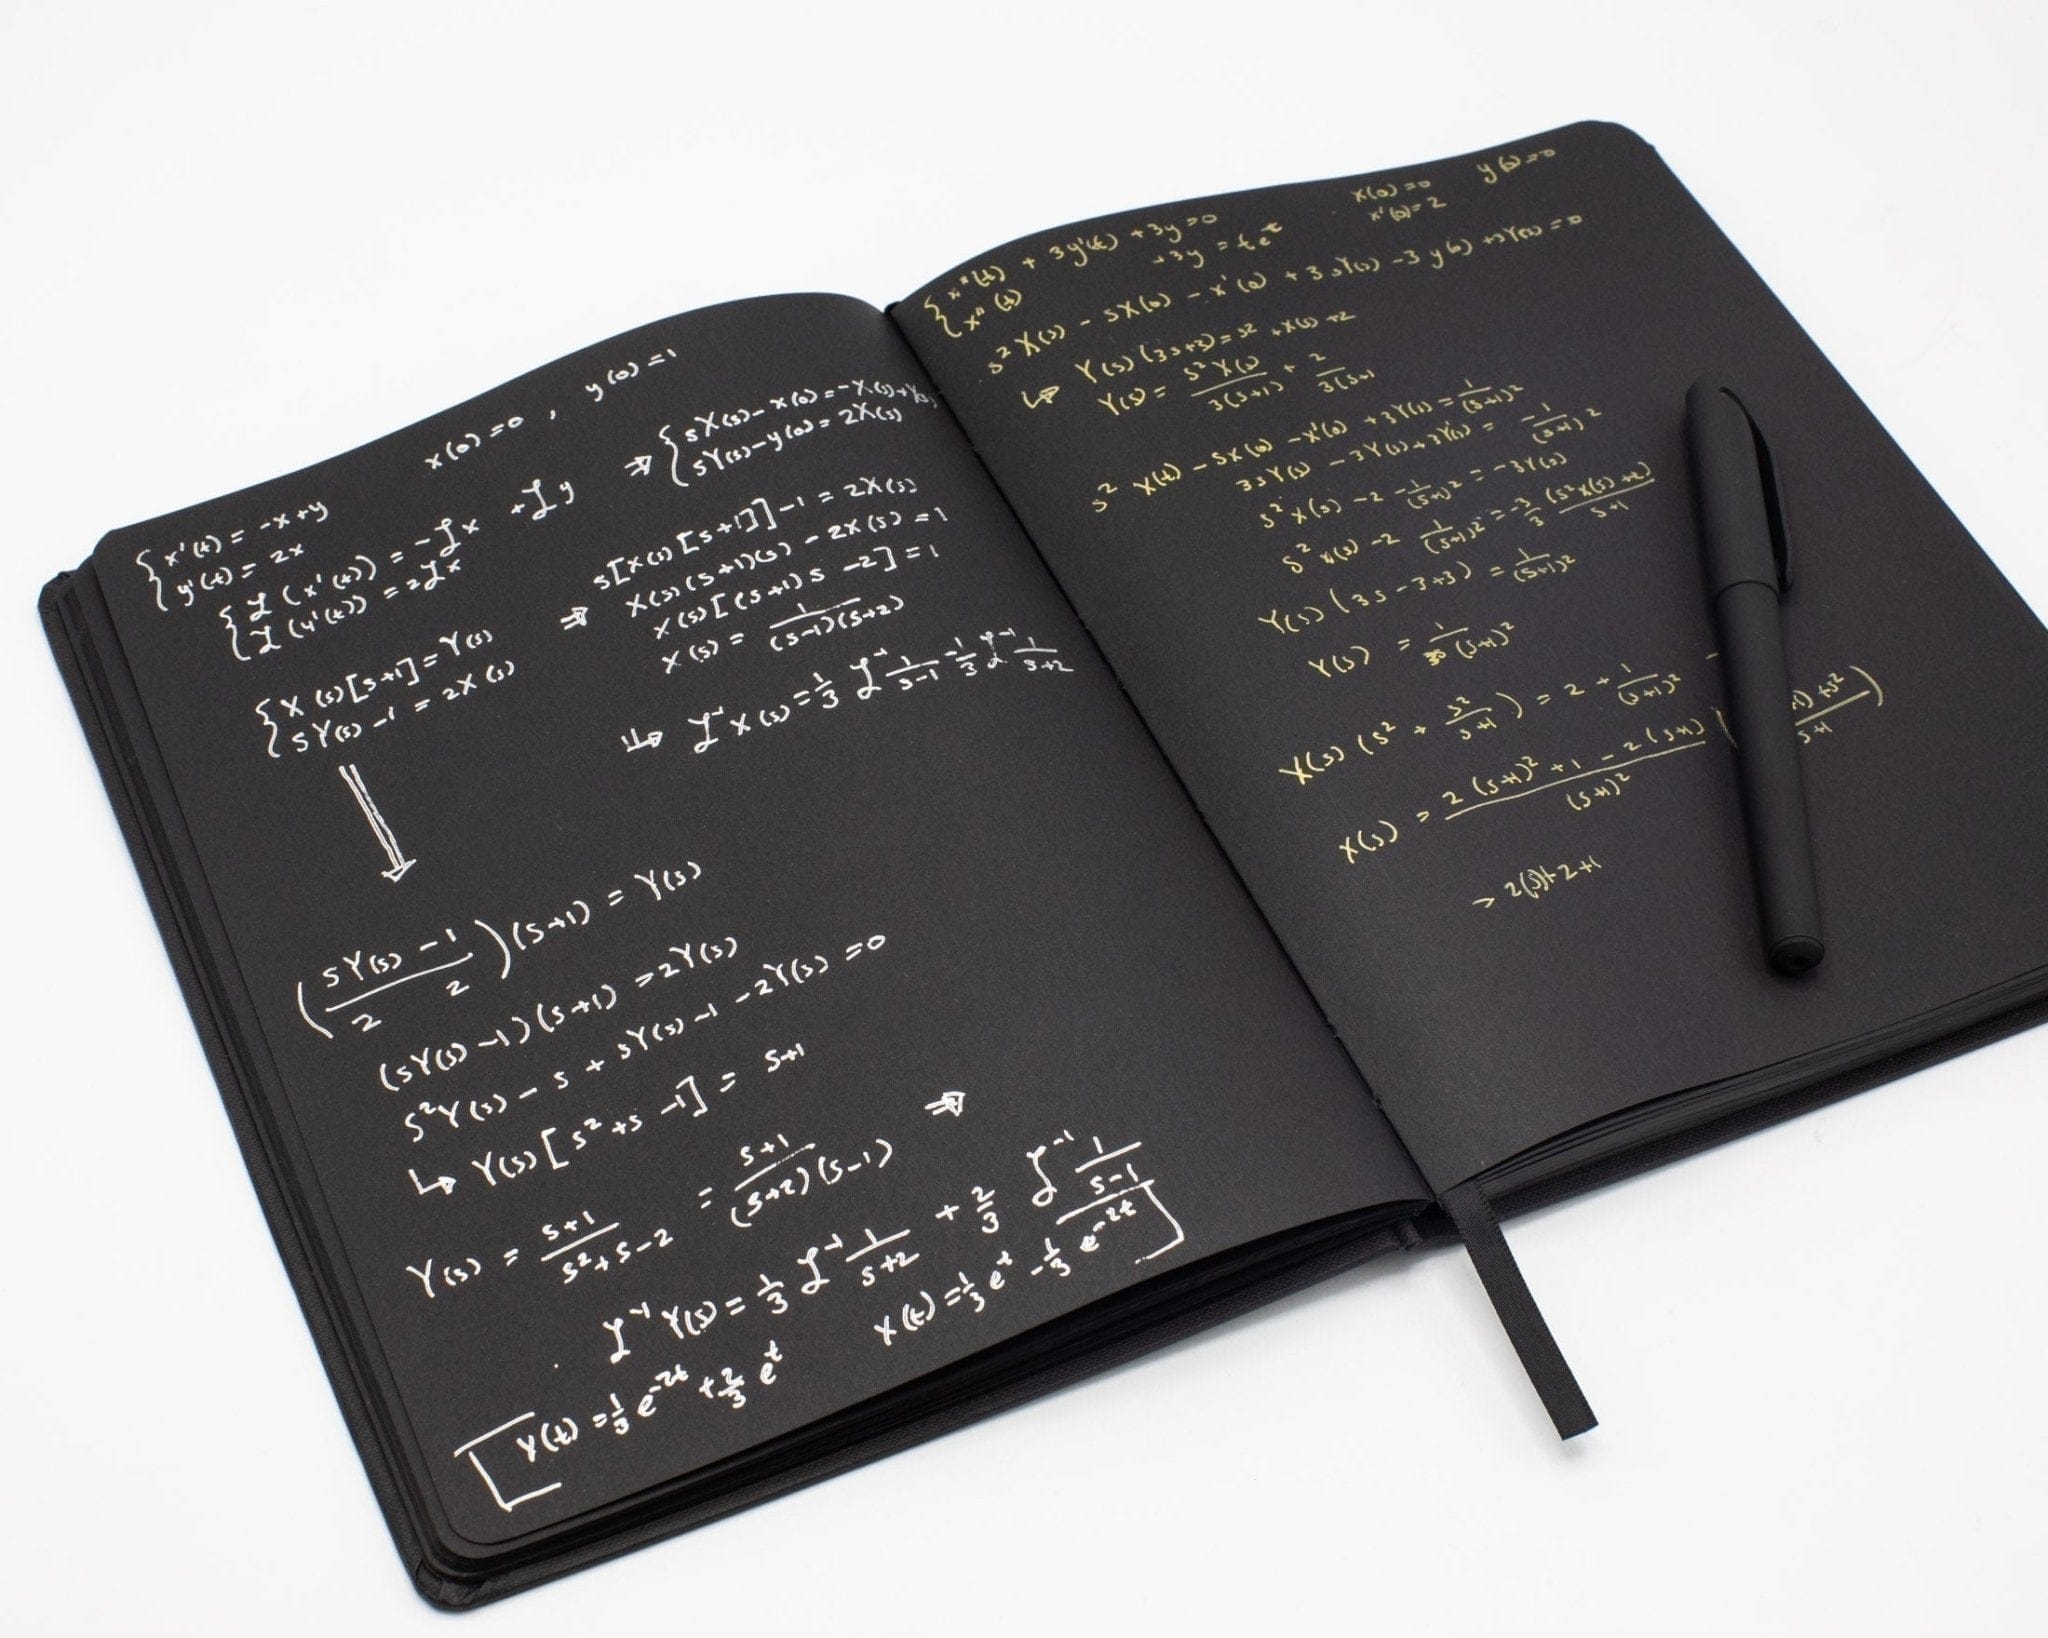 x(0)=0 , y(0)=1
{ x'(t) = -x+y
y'(t) = 2x
{ ℒ(x'(t)) = -ℒx + ℒy
ℒ(y'(t)) = 2ℒx
{ X(s)[s+1] = Y(s)
sY(s)-1 = 2X(s)
⇒ { sX(s)-x(0) = -X(s)+Y(s)
sY(s)-y(0) = 2X(s)
⇒ s[X(s)[s+1]]-1 = 2X(s)
X(s)(s+1)(s) - 2X(s) = 1
X(s)[(s+1)s-2] = 1
X(s) = 1/(s-1)(s+2)
↳ ℒ⁻¹X(s) = 1/3 ℒ⁻¹ 1/s-1 - 1/3 ℒ⁻¹ 1/s+2
(sY(s)-1 / 2)(s+1) = Y(s)
2 2
(sY(s)-1)(s+1) = 2Y(s)
s²Y(s) - s + sY(s) - 1 - 2Y(s) = 0
↳ Y(s)[s²+s-1] = s+1
Y(s) = s+1/s²+s-2 = s+1/(s+2)(s-1) ⇒
ℒ⁻¹Y(s) = 1/3 ℒ⁻¹ 1/s+2 + 2/3 ℒ⁻¹ 1/s-1
y(t) = 1/3 e^-2t + 2/3 e^t
x(t) = 1/3 e^t - 1/3 e^-2t
x(0)=0 y(0)=0
x'(0)=2
{ x''(t) + 3y'(t) + 3y = 0
x''(t) +3y = te^t
s²X(s) - sX(0) - x'(0) + 3sY(s) - 3y(0) + 3Y(s) = 0
↳ Y(s)(3s+3) = s² + X(s) + 2
Y(s) = s²X(s)/3(s+1) + 2/3(s+1
s² X(t) - sX(0) - x'(0) + 3Y(s) = 1/(s+1)²
3sY(s) - 3Y(s)+3Y(s) = -1/(s+1)²
s²X(s) - 2 - 1/(s+1)² = -3Y(s)
s² X(s) - 2 1/(s+1)² = -3/3 (s²X(s)+2)/s+1
Y(s)(3s-3+3) = 1/(s+1)²
Y(s) = 1/(s+1)²
X(s)(s² + s²/s+1) = 2 + 1/(s+1)² -
X(s) = 2(s+1)²+1-2(s+1)/(s+1)² ( +s²/s+1 )
→ 2(s)+2+1